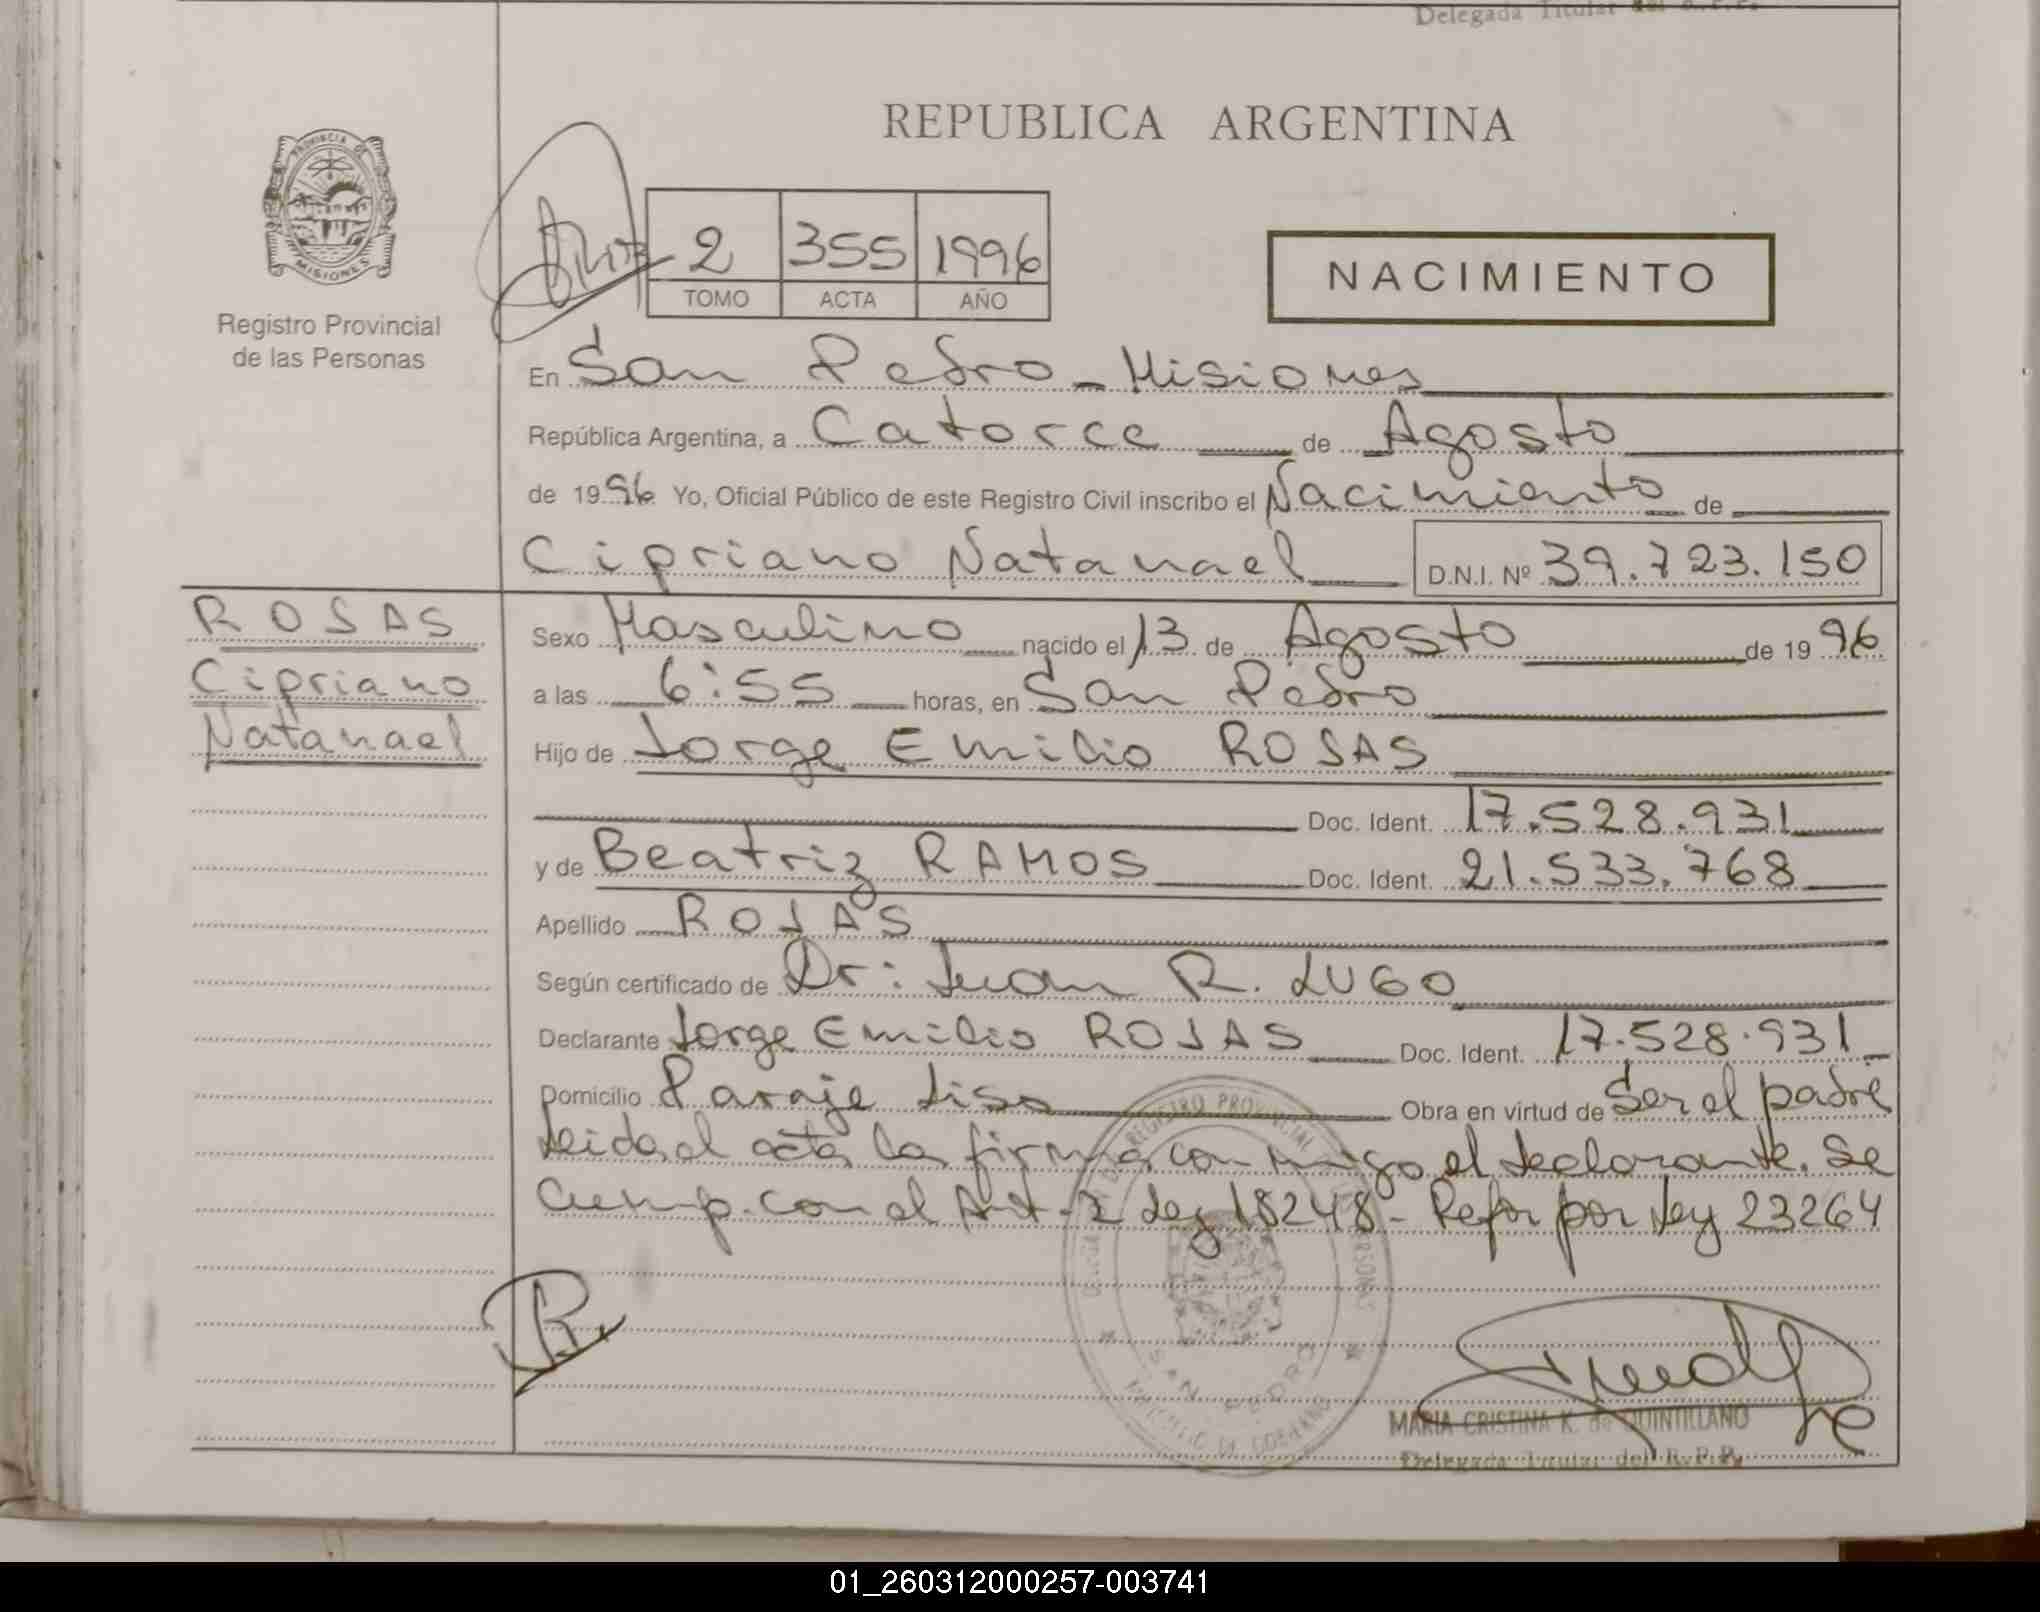 Delegada Titular del R.P.P.
REPUBLICA ARGENTINA
PROVINCIA DE
MISIONES
Registro Provincial
de las Personas
2 355 1996
TOMO ACTA AÑO
NACIMIENTO
En San Pedro - Misiones
República Argentina, a Catorce de Agosto
de 1996 Yo, Oficial Público de este Registro Civil inscribo el Nacimiento de
Cipriano Natanael D.N.I. Nº 39.723.150
ROSAS
Cipriano
Natanael
Sexo Masculino nacido el 13 de Agosto de 1996
a las 6:55 horas, en San Pedro
Hijo de Jorge Emilio ROSAS
Doc. Ident. 17.528.931
y de Beatriz RAMOS Doc. Ident. 21.533.768
Apellido ROSAS
Según certificado de Dr: Juan R. LUGO
Declarante Jorge Emilio ROSAS Doc. Ident. 17.528.931
Domicilio Paraje Liso Obra en virtud de Ser el padre
Leida el acta la firma con migo el declarante. Se
Cump. con el Art. 2 Ley 18248 - Refor por Ley 23264
REGISTRO PROVINCIAL DE LAS PERSONAS
SAN PEDRO
MINISTERIO DE GOBIERNO
MARIA CRISTINA K. de QUINTILLANO
Delegada Titular del R.P.P.
01_260312000257-003741